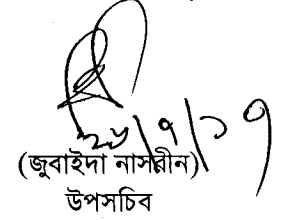 ২৬/৭/১৭
(জুবাইদা নাসরীন)
উপসচিব